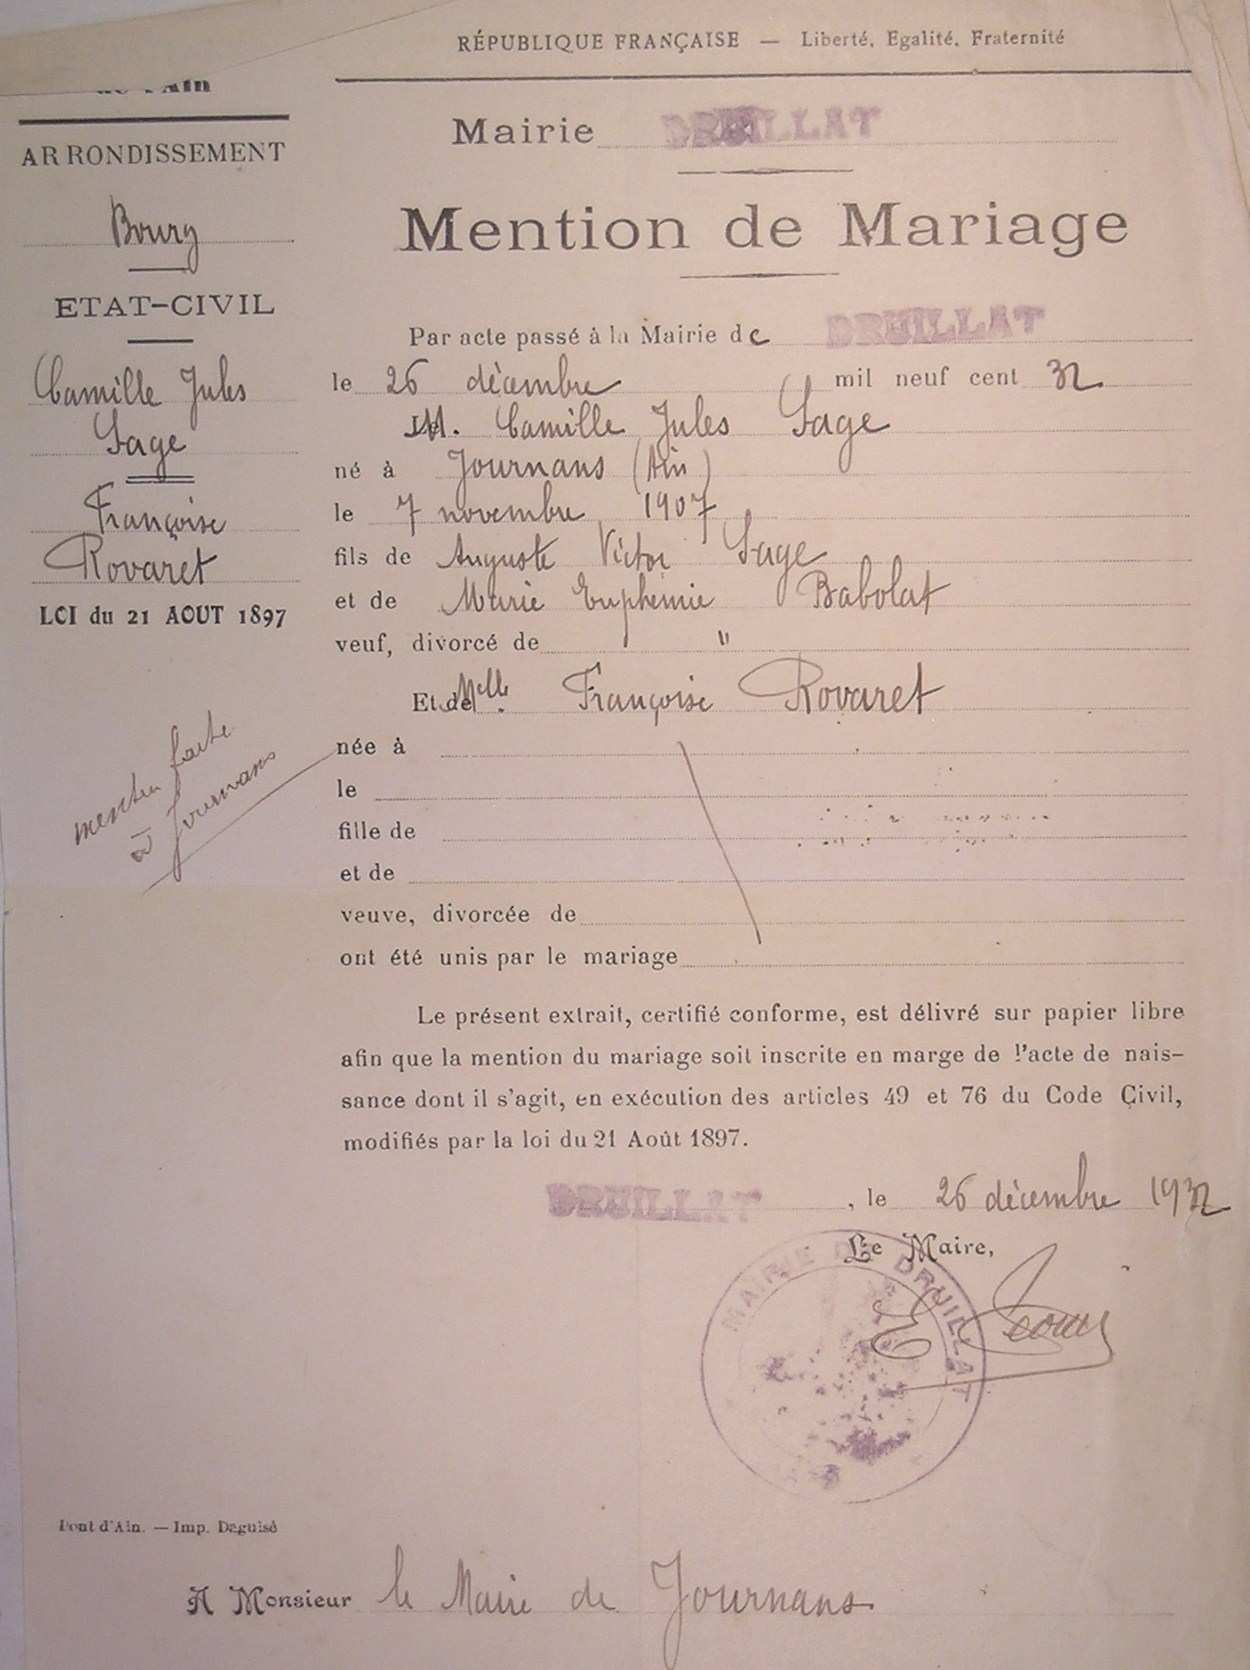 RÉPUBLIQUE FRANÇAISE — Liberté, Egalité, Fraternité
de l'Ain
ARRONDISSEMENT
Bourg
ETAT-CIVIL
Camille Jules
Sage
Françoise
Rovaret
LOI du 21 AOUT 1897
mention faite
à Journans
Mairie DRUILLAT
Mention de Mariage
Par acte passé à la Mairie de DRUILLAT
le 26 décembre mil neuf cent 32
M. Camille Jules Sage
né à Journans (Ain)
le 7 novembre 1907
fils de Auguste Victor Sage
et de Marie Euphémie Babolat
veuf, divorcé de "
Et de Melle Françoise Rovaret
née à
le
fille de
et de
veuve, divorcée de
ont été unis par le mariage
Le présent extrait, certifié conforme, est délivré sur papier libre
afin que la mention du mariage soit inscrite en marge de l'acte de nais-
sance dont il s'agit, en exécution des articles 49 et 76 du Code Çivil,
modifiés par la loi du 21 Août 1897.
DRUILLAT, le 26 décembre 1932
Le Maire,
MAIRIE DE DRUILLAT
Pont d'Ain. — Imp. Daguisé
A Monsieur le Maire de Journans